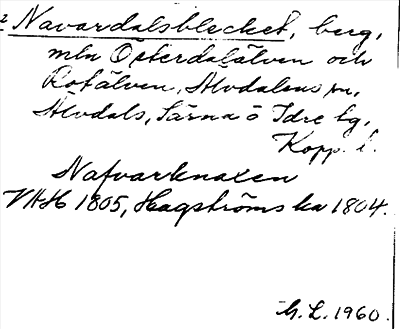 Navardalsblecket, berg,
mln Österdalälven och
Rotälven, Älvdalens sn,
Älvdals, Särna o Idre tg,
Kopp. l.
Nafvarknaxen
VAH 1805, Hagströms ka 1804.
G. L. 1960.